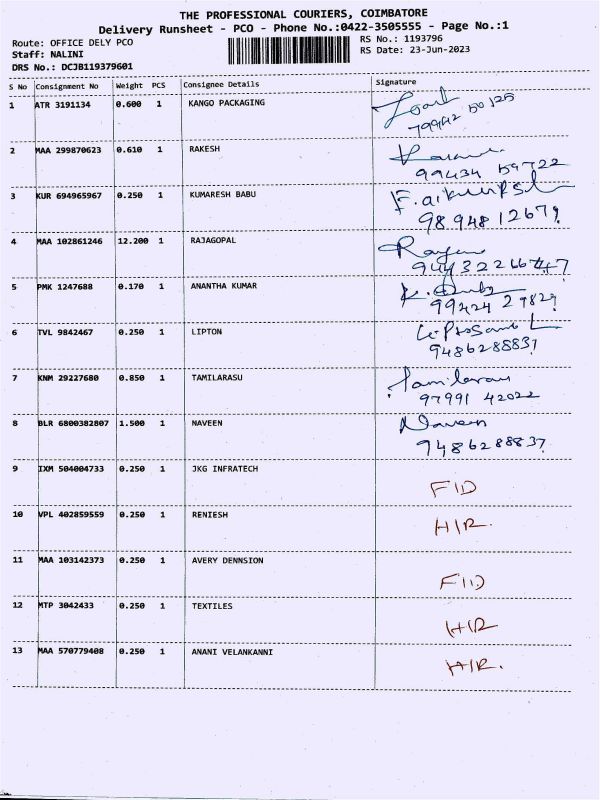 THE PROFESSIONAL COURIERS, COIMBATORE
Delivery Runsheet - PCO - Phone No.:0422-3505555 - Page No.:1
Route: OFFICE DELY PCO
Staff: NALINI
DRS No.: DCJB119379601
RS No.: 1193796
RS Date: 23-Jun-2023
S No Consignment No Weight PCS Consignee Details Signature
1 ATR 3191134 0.600 1 KANGO PACKAGING
79942 50125
2 MAA 299870623 0.610 1 RAKESH
99434 59722
3 KUR 694965967 0.250 1 KUMARESH BABU
98948 12679
4 MAA 102861246 12.200 1 RAJAGOPAL
5 PMK 1247688 0.170 1 ANANTHA KUMAR
99424 29829
6 TVL 9842467 0.250 1 LIPTON
9486288837
7 KNM 29227680 0.850 1 TAMILARASU
Tamilarasu
97991 42022
8 BLR 6800382807 1.500 1 NAVEEN
Naveen
9486288837
9 IXM 504004733 0.250 1 JKG INFRATECH
FID
10 VPL 402859559 0.250 1 RENIESH
HIR.
11 MAA 103142373 0.250 1 AVERY DENNSION
FID
12 MTP 3042433 0.250 1 TEXTILES
HIR
13 MAA 570779408 0.250 1 ANANI VELANKANNI
HIR.